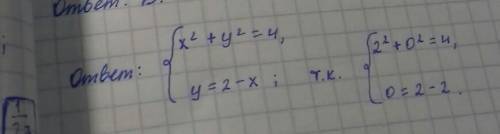 Ответ:
Ответ: { x² + y² = 4, y = 2 - x ; т.к. { 2² + 0² = 4, 0 = 2 - 2 .